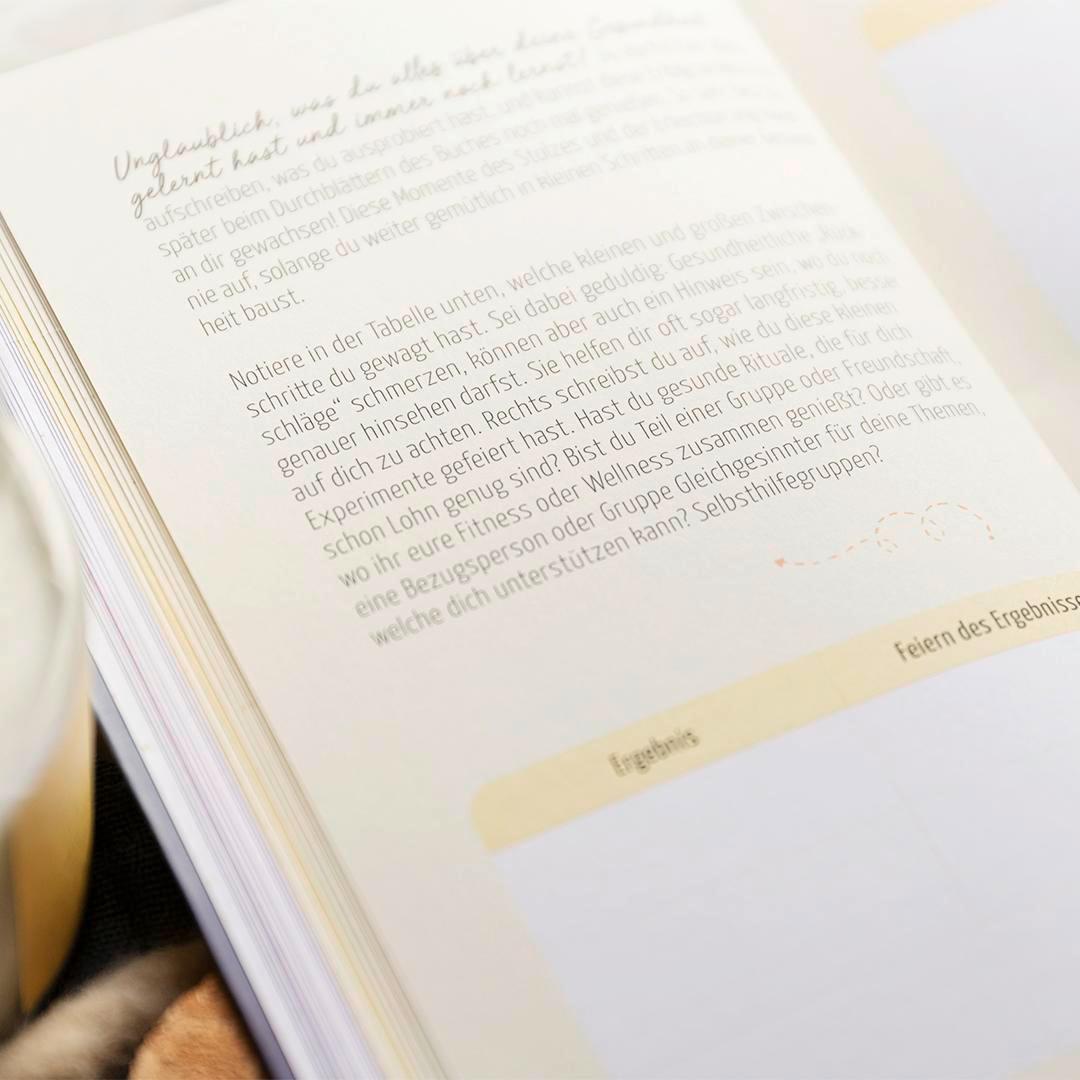 Unglaublich, was du alles über deine Gesundheit
gelernt hast und immer noch lernst!
aufschreiben, was du ausprobiert hast, und kannst diese Erfolge
später beim Durchblättern des Buches noch mal genießen.
an dir gewachsen! Diese Momente des Stolzes und der
nie auf, solange du weiter gemütlich in kleinen Schritten an deiner
heit baust.
Notiere in der Tabelle unten, welche kleinen und großen Zwischen-
schritte du gewagt hast. Sei dabei geduldig: Gesundheitliche „Rück-
schläge“ schmerzen, können aber auch ein Hinweis sein, wo du noch
genauer hinsehen darfst. Sie helfen dir oft sogar langfristig, besser
auf dich zu achten. Rechts schreibst du auf, wie du diese kleinen
Experimente gefeiert hast. Hast du gesunde Rituale, die für dich
schon Lohn genug sind? Bist du Teil einer Gruppe oder Freundschaft,
wo ihr eure Fitness oder Wellness zusammen genießt? Oder gibt es
eine Bezugsperson oder Gruppe Gleichgesinnter für deine Themen,
welche dich unterstützen kann? Selbsthilfegruppen?
Ergebnis
Feiern des Ergebnisses